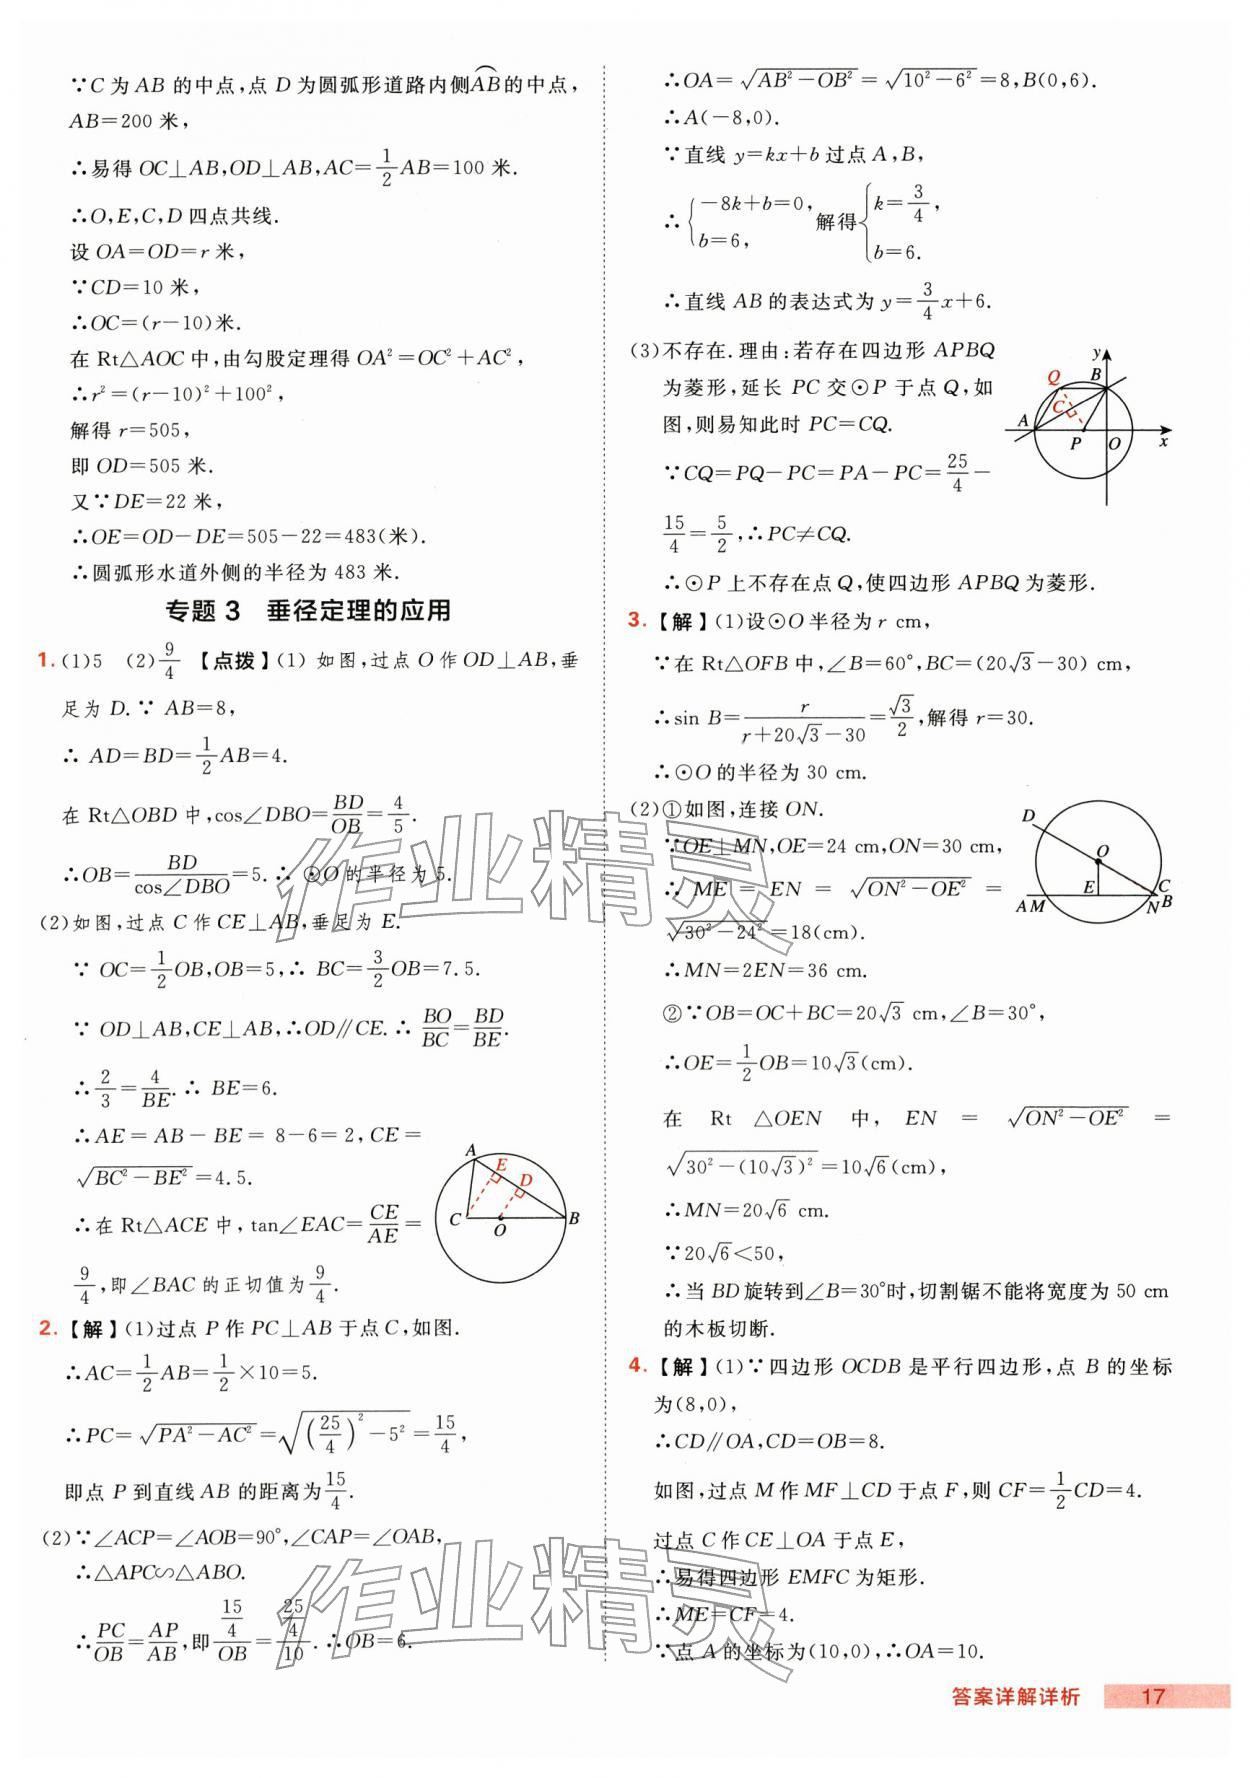 ∵C 为 AB 的中点,点 D 为圆弧形道路内侧$\overset{\frown}{AB}$的中点,
AB=200 米,
∴易得 OC⊥AB,OD⊥AB,AC=$\frac{1}{2}$AB=100 米.
∴O,E,C,D 四点共线.
设 OA=OD=r 米,
∵CD=10 米,
∴OC=(r-10)米.
在 Rt△AOC 中,由勾股定理得 OA²=OC²+AC²,
∴r²=(r-10)²+100²,
解得 r=505,
即 OD=505 米.
又∵DE=22 米,
∴OE=OD-DE=505-22=483(米).
∴圆弧形水道外侧的半径为 483 米.
专题 3 垂径定理的应用
1.(1)5 (2)$\frac{9}{4}$ 【点拨】(1) 如图,过点 O 作 OD⊥AB,垂
足为 D.∵ AB=8,
∴ AD=BD=$\frac{1}{2}$AB=4.
在 Rt△OBD 中,cos∠DBO=$\frac{BD}{OB}$=$\frac{4}{5}$.
∴OB=$\frac{BD}{cos∠DBO}$=5.∴ ⊙O 的半径为 5.
(2)如图,过点 C 作 CE⊥AB,垂足为 E.
∵ OC=$\frac{1}{2}$OB,OB=5,∴ BC=$\frac{3}{2}$OB=7.5.
∵ OD⊥AB,CE⊥AB,∴OD∥CE.∴ $\frac{BO}{BC}$=$\frac{BD}{BE}$.
∴$\frac{2}{3}$=$\frac{4}{BE}$.∴ BE=6.
∴AE=AB-BE=8-6=2,CE=
$\sqrt{BC²-BE²}$=4.5.
∴在 Rt△ACE 中,tan∠EAC=$\frac{CE}{AE}$=
$\frac{9}{4}$,即∠BAC 的正切值为$\frac{9}{4}$.
A E D C O B
2.【解】(1)过点 P 作 PC⊥AB 于点 C,如图.
∴AC=$\frac{1}{2}$AB=$\frac{1}{2}$×10=5.
∴PC=$\sqrt{PA²-AC²}$=$\sqrt{(\frac{25}{4})²-5²}$=$\frac{15}{4}$,
即点 P 到直线 AB 的距离为$\frac{15}{4}$.
(2)∵∠ACP=∠AOB=90°,∠CAP=∠OAB,
∴△APC∽△ABO.
∴$\frac{PC}{OB}$=$\frac{AP}{AB}$,即$\frac{\frac{15}{4}}{OB}$=$\frac{\frac{25}{4}}{10}$.∴OB=6.
∴OA=$\sqrt{AB²-OB²}$=$\sqrt{10²-6²}$=8,B(0,6).
∴A(-8,0).
∵直线 y=kx+b 过点 A,B,
∴{-8k+b=0, b=6, 解得{k=$\frac{3}{4}$, b=6.
∴直线 AB 的表达式为 y=$\frac{3}{4}$x+6.
(3)不存在.理由:若存在四边形 APBQ
为菱形,延长 PC 交⊙P 于点 Q,如
图,则易知此时 PC=CQ.
∵CQ=PQ-PC=PA-PC=$\frac{25}{4}$-
$\frac{15}{4}$=$\frac{5}{2}$,∴PC≠CQ.
∴⊙P 上不存在点 Q,使四边形 APBQ 为菱形.
y Q B C A P O x
3.【解】(1)设⊙O 半径为 r cm,
∵在 Rt△OFB 中,∠B=60°,BC=(20$\sqrt{3}$-30) cm,
∴sin B=$\frac{r}{r+20\sqrt{3}-30}$=$\frac{\sqrt{3}}{2}$,解得 r=30.
∴⊙O 的半径为 30 cm.
(2)①如图,连接 ON.
∵OE⊥MN,OE=24 cm,ON=30 cm,
∴ ME = EN = $\sqrt{ON²-OE²}$ =
$\sqrt{30²-24²}$=18(cm).
∴MN=2EN=36 cm.
D O E C A M N B
②∵OB=OC+BC=20$\sqrt{3}$ cm,∠B=30°,
∴OE=$\frac{1}{2}$OB=10$\sqrt{3}$(cm).
在 Rt △OEN 中, EN = $\sqrt{ON²-OE²}$ =
$\sqrt{30²-(10\sqrt{3})²}$=10$\sqrt{6}$(cm),
∴MN=20$\sqrt{6}$ cm.
∵20$\sqrt{6}$<50,
∴当 BD旋转到∠B=30°时,切割锯不能将宽度为 50 cm
的木板切断.
4.【解】(1)∵四边形 OCDB 是平行四边形,点 B 的坐标
为(8,0),
∴CD∥OA,CD=OB=8.
如图,过点 M 作 MF⊥CD 于点 F,则 CF=$\frac{1}{2}$CD=4.
过点 C 作 CE⊥OA 于点 E,
∴易得四边形 EMFC 为矩形.
∴ME=CF=4.
∵点 A 的坐标为(10,0),∴OA=10.
答案详解详析 17
作业精灵
作业精灵